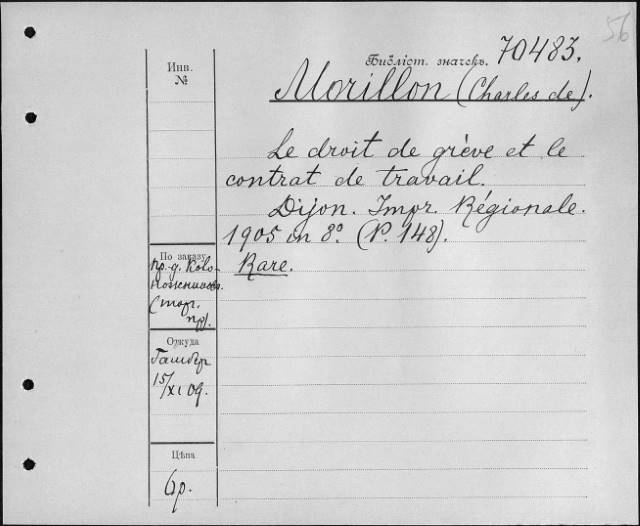 56
Библіот. значекъ. 70483.
Инв.
№
Morillon (Charles de).
Le droit de grève et le
contrat de travail.
Dijon. Impr. Régionale.
1905 in 8º. (P. 148).
Rare.
По заказу
пр. д.
(торг.
пр).
Откуда
15/XI 09.
Цѣна
6р.